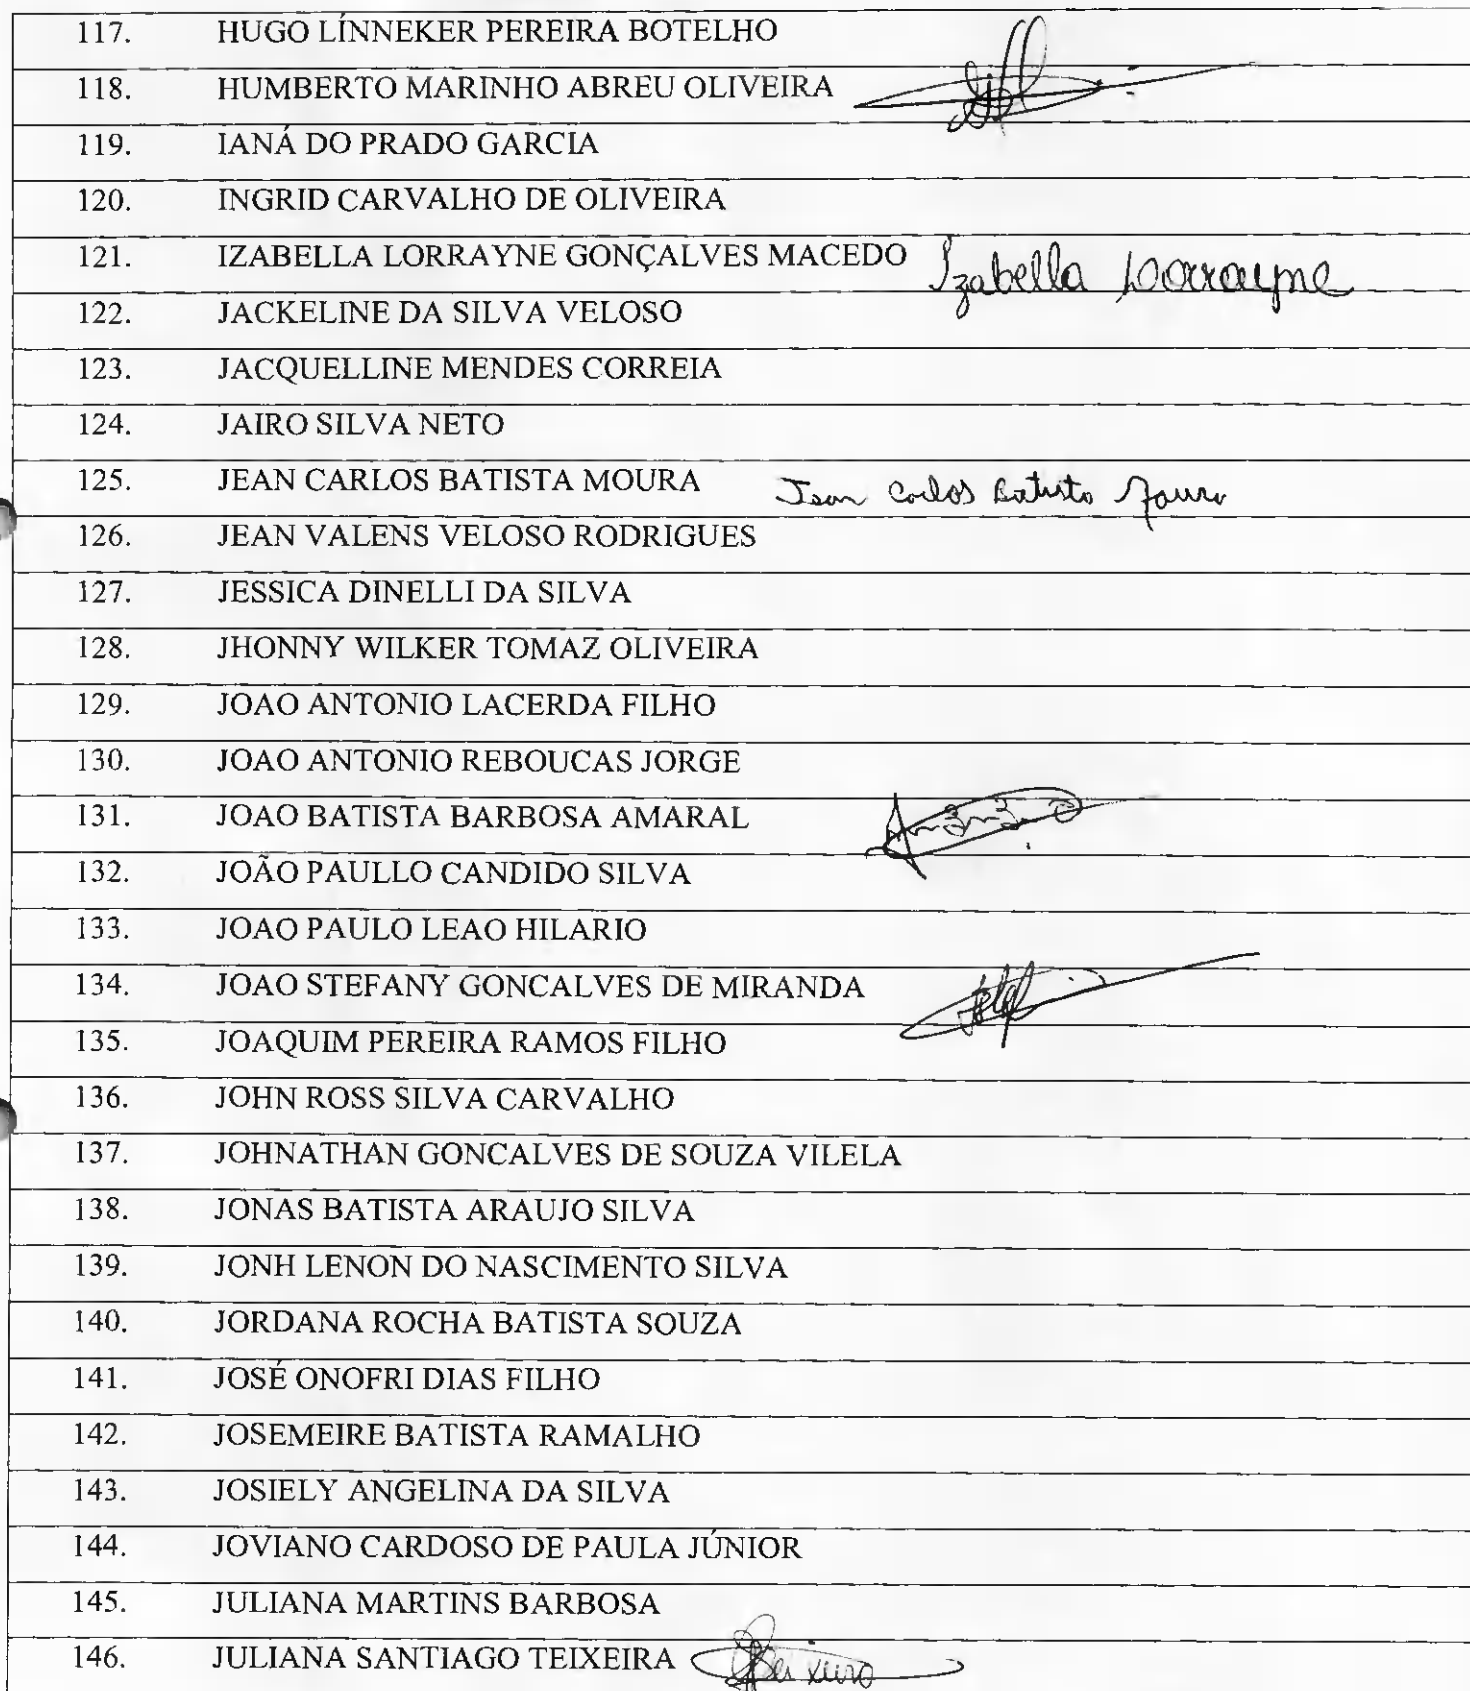 117. HUGO LÍNNEKER PEREIRA BOTELHO
118. HUMBERTO MARINHO ABREU OLIVEIRA
119. IANÁ DO PRADO GARCIA
120. INGRID CARVALHO DE OLIVEIRA
121. IZABELLA LORRAYNE GONÇALVES MACEDO Izabella Lorrayne
122. JACKELINE DA SILVA VELOSO
123. JACQUELLINE MENDES CORREIA
124. JAIRO SILVA NETO
125. JEAN CARLOS BATISTA MOURA Jean Carlos Batista Moura
126. JEAN VALENS VELOSO RODRIGUES
127. JESSICA DINELLI DA SILVA
128. JHONNY WILKER TOMAZ OLIVEIRA
129. JOAO ANTONIO LACERDA FILHO
130. JOAO ANTONIO REBOUCAS JORGE
131. JOAO BATISTA BARBOSA AMARAL
132. JOÃO PAULLO CANDIDO SILVA
133. JOAO PAULO LEAO HILARIO
134. JOAO STEFANY GONCALVES DE MIRANDA
135. JOAQUIM PEREIRA RAMOS FILHO
136. JOHN ROSS SILVA CARVALHO
137. JOHNATHAN GONCALVES DE SOUZA VILELA
138. JONAS BATISTA ARAUJO SILVA
139. JONH LENON DO NASCIMENTO SILVA
140. JORDANA ROCHA BATISTA SOUZA
141. JOSÉ ONOFRI DIAS FILHO
142. JOSEMEIRE BATISTA RAMALHO
143. JOSIELY ANGELINA DA SILVA
144. JOVIANO CARDOSO DE PAULA JÚNIOR
145. JULIANA MARTINS BARBOSA
146. JULIANA SANTIAGO TEIXEIRA